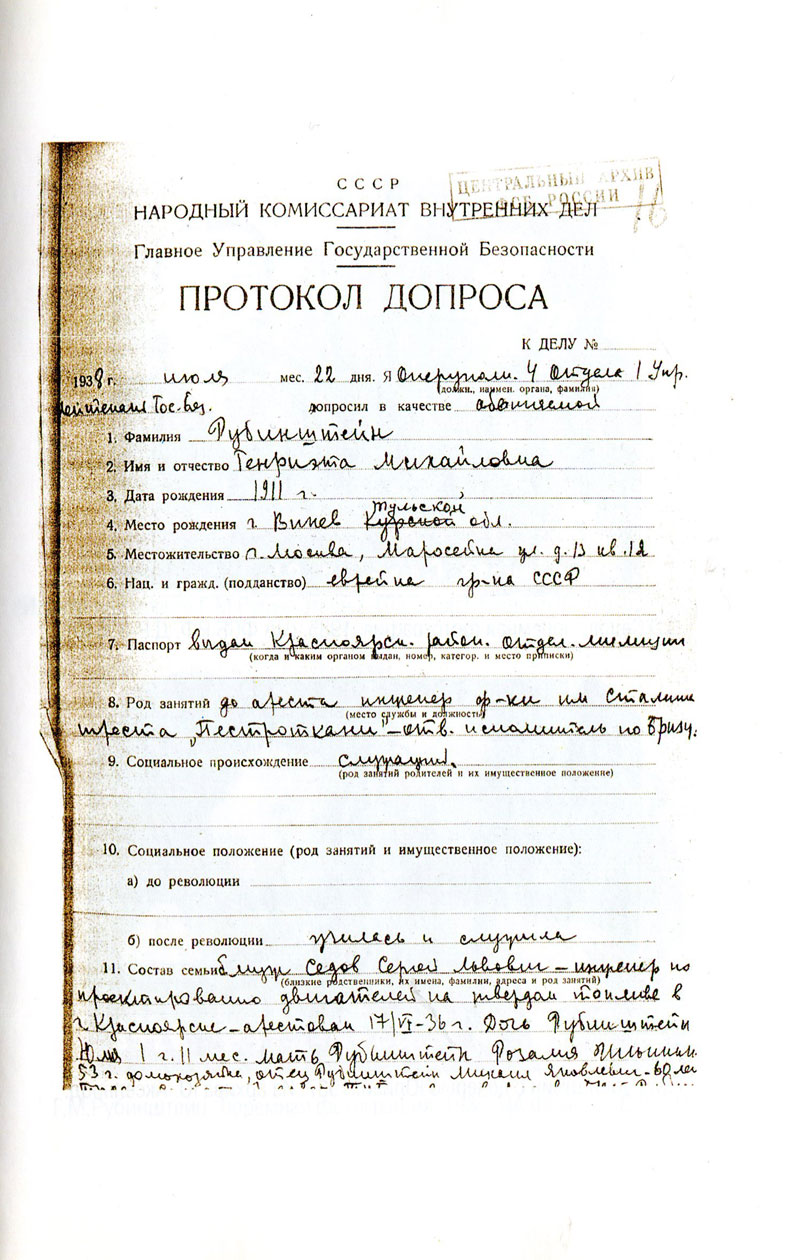 СССР
ЦЕНТРАЛЬНЫЙ АРХИВ
ФСБ РОССИИ
16
НАРОДНЫЙ КОМИССАРИАТ ВНУТРЕННИХ ДЕЛ
Главное Управление Государственной Безопасности
ПРОТОКОЛ ДОПРОСА
К ДЕЛУ №
1938 г. июля мес. 22 дня. Я Оперуполн. 4 Отдела 1 Упр.
(должн., наимен. органа, фамилия)
Гос. Без. допросил в качестве обвиняемой
1. Фамилия Рубинштейн
2. Имя и отчество Генриэта Михайловна
3. Дата рождения 1911 г.
Тульской
4. Место рождения г. Курской обл.
5. Местожительство г. Москва, Маросейка ул. д. 13 кв. 12
6. Нац. и гражд. (подданство) еврейка гр-ка СССР
7. Паспорт выдан Красноярск. район. отдел. милиции
(когда и каким органом выдан, номер, категор. и место приписки)
8. Род занятий до ареста инженер ф-ки им Сталина
(место службы и должность)
треста „Пестроткани" – отв. исполнитель по Бризу.
9. Социальное происхождение служащий.
(род занятий родителей и их имущественное положение)
10. Социальное положение (род занятий и имущественное положение):
а) до революции
б) после революции училась и служила
11. Состав семьи Седов Сергей Львович – инженер по
(близкие родственники, их имена, фамилии, адреса и род занятий)
проектированию двигателей на твердом топливе в
г. Красноярске – арестован 17/VI-36 г. Дочь Рубинштейн
Юлия 1 г. 11 мес. мать Рубинштейн Розалия
53 г. домохозяйка, отец Рубинштейн Михаил Яковлевич – 60 лет